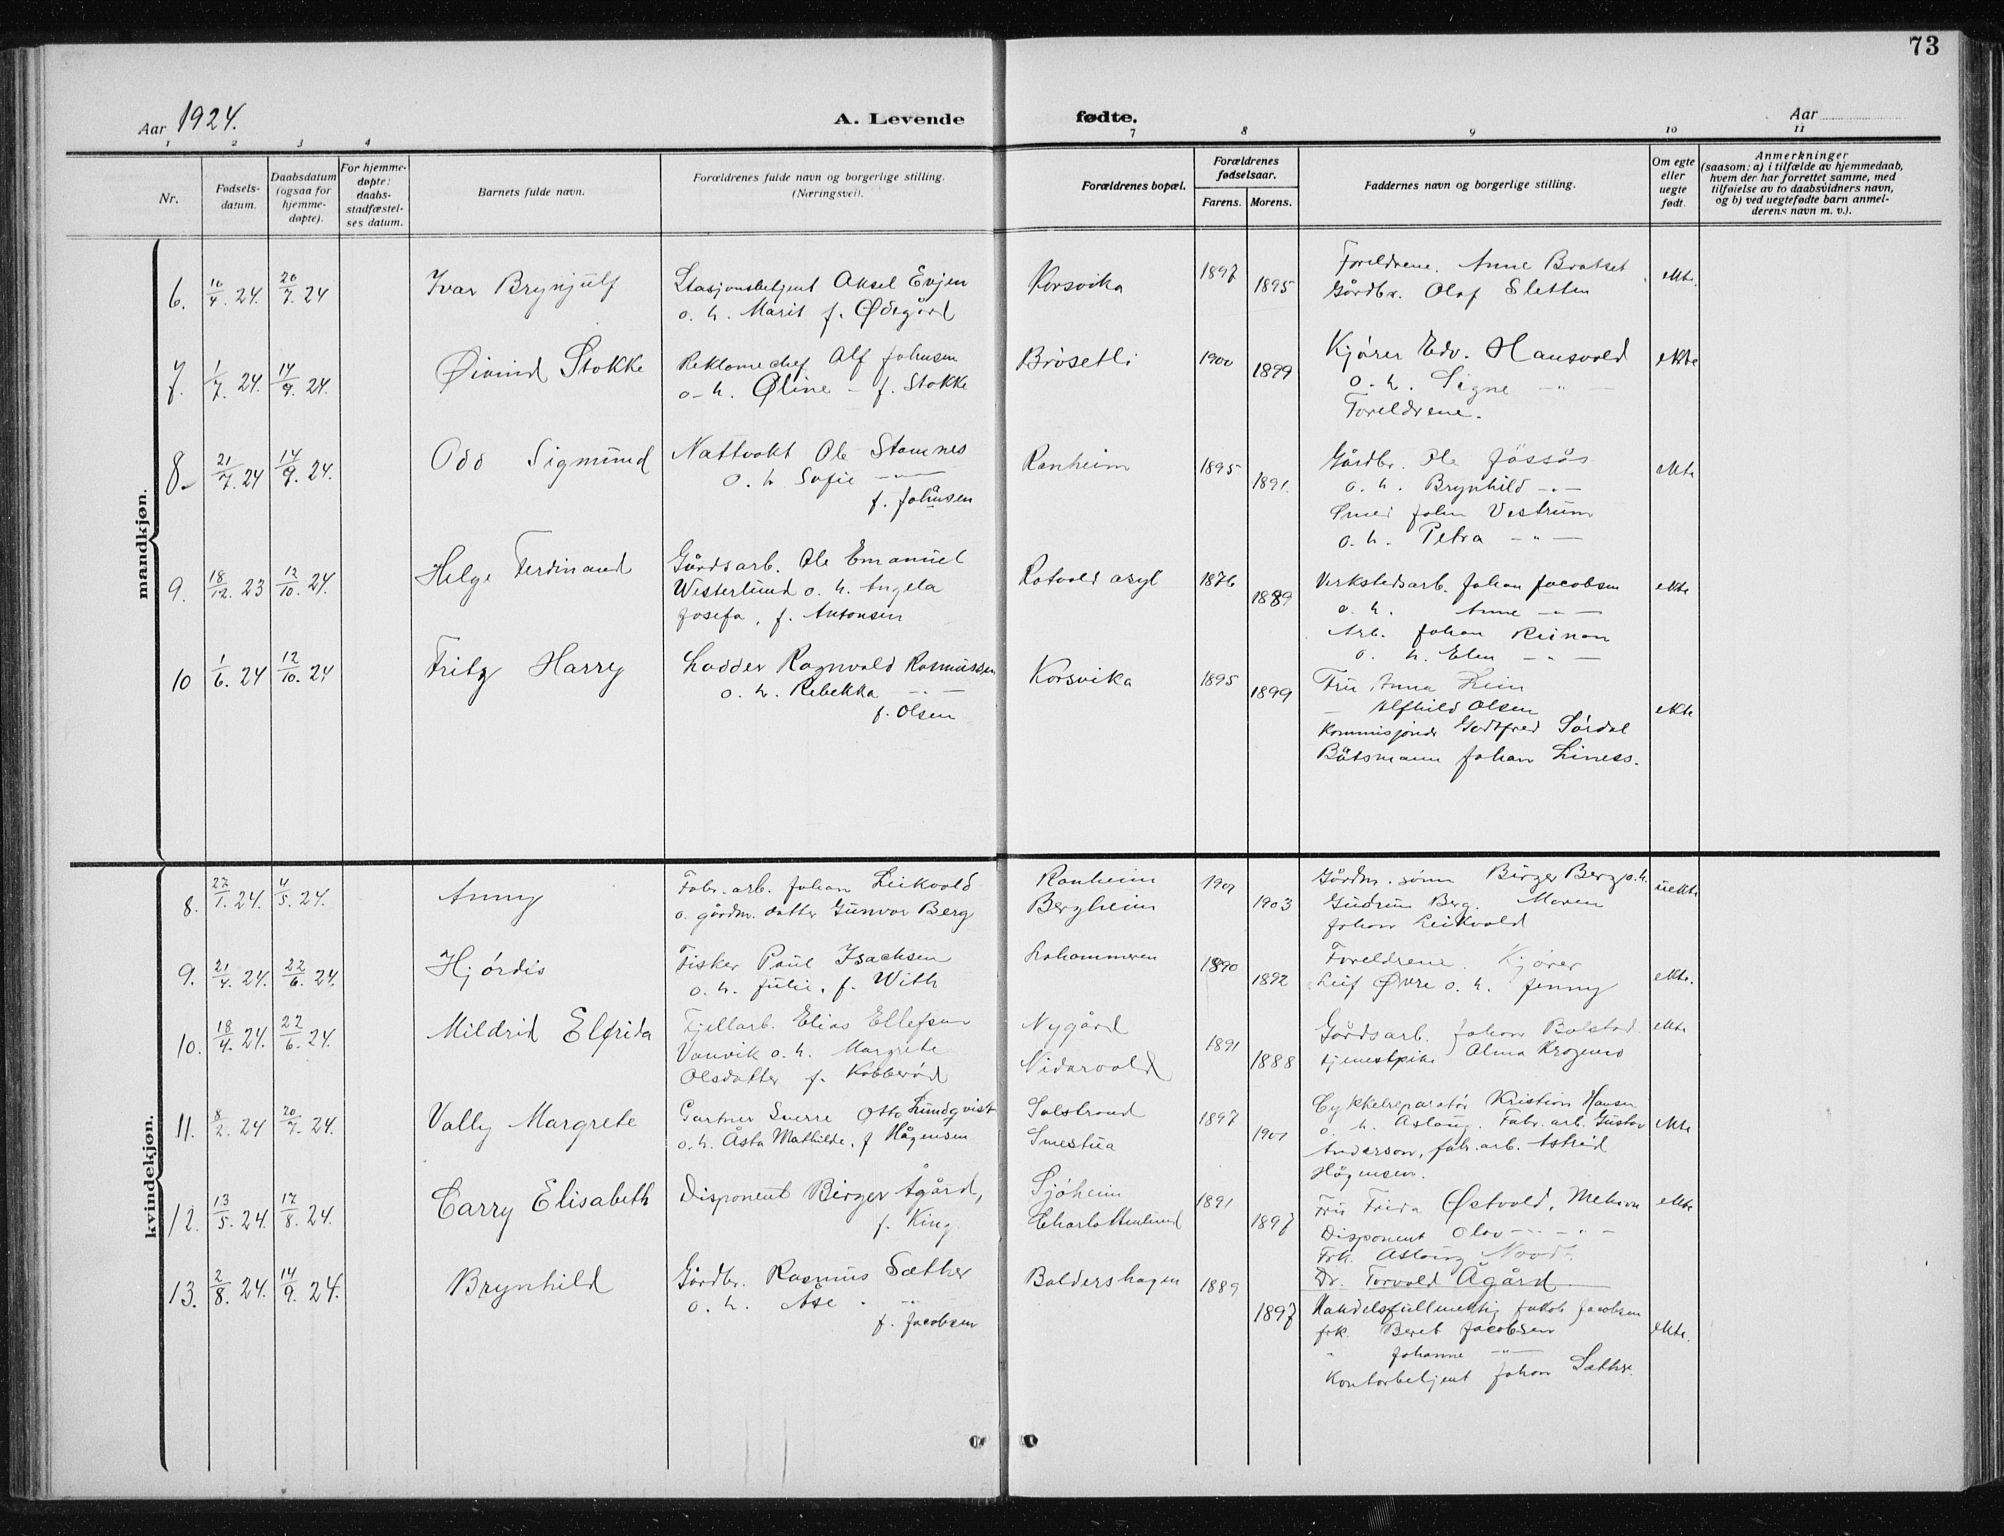 73
Aar 1924.
A. Levende fødte.
Aar
1 2 3 4 7 8 9 10 11
Nr.
Fødsels-
datum.
Daabsdatum
(ogsaa for
hjemme-
døpte).
For hjemme-
døpte:
daabs-
stadfæstel-
ses datum.
Barnets fulde navn.
Forældrenes fulde navn og borgerlige stilling.
(Næringsvei).
Forældrenes bopæl.
Forældrenes
fødselsaar.
Farens. Morens.
Faddernes navn og borgerlige stilling.
Om egte
eller
uegte
født.
Anmerkninger
(saasom: a) i tilfælde av hjemmedaab,
hvem der har forrettet samme, med
tilføielse av to daabsvidners navn,
og b) ved uegtefødte barn anmel-
derens navn m. v.).
mandkjøn.
6. 10/4. 24. 20/7. 24 Ivar Brynjulf
Stasjonsbetjent Aksel Evjen
o. h. Marit f. Ødegård
Korsvika 1897 1895
Foreldrene. Anne Bratset
Gårdbr. Olaf Sletten
ekte.
7. 1/7. 24. 14/9. 24. Øivind Stokke
Reklamechef Alf Johnsen
o. h. Øline - f. Stokke
Brøsetli 1900 1899
Kjører Edv. Hansvold
o. h. Signe - " -
Foreldrene.
ekte
8. 21/7. 24 14/9. 24. Odd Sigmund
Nattvakt Ole Stamnes
o. h. Sofie - " -
f. Johnsen
Ranheim 1895 1891.
Gårdbr. Ole Jøssås
o. h. Brynhild - " -
Smed John Vestrum
o. h. Petra - " -
ekte
9. 18/12. 23 12/10. 24. Helge Ferdinand
Gårdsarb. Ole Emanuel
Westerlund o. h. Angela
Josefa, f. Antonsen
Rotvold asyl 1876 1889
Verkstedsarb. Johan Jacobsen
o. h. Anne - " -
Arb. Johan Reinan
o. h. Elen - " -
ekte
10 1/6. 24 12/10. 24 Fritz Harry
Lodder Ragnvald Rasmussen
o. h. Rebekka - " -
f. Olsen
Korsvika 1895 1899
Fru Anna Lein
- Alfhild Olsen
Kommisjonær Godtfred Sørdal
Båtsmann Johan Liness.
ekte
kvindekjøn.
8. 27/1. 24. 4/5. 24. Anny
Fabr. arb. Johan Leikvold
o. gårdm. datter Gunvor Berg
Ranheim
Bergheim
1901 1903
Gårdm. sønn Birger Berg o. h.
Gudrun Berg. Maren
Johan Leikvold
uekte
9. 21/4. 24. 22/6. 24. Hjørdis
Fisker Paul Isachsen
o. h. Julie, f. With
Ladehammeren 1890 1892
Foreldrene. Kjører
Leif Øvre o. h. Jenny
ekte.
10. 18/4. 24. 22/6. 24. Mildrid Elfrida
Fjellarb. Elias Ellefsen
Vanvik o. h. Margrete
Olsdatter f. Kobberød
Nygård
Nidarvold
1891 1888
Gårdsarb. Johan Bolstad
tjenestpike Alma Krogenes
ekte
11. 8/2. 24 20/7. 24. Vally Margrete
Gartner Sverre Otto Lundqvist
o. h. Åsta Mathilde, f Hågensen
Solstrand
Smestua
1897 1901
Cykkelreparatør Kristian Hansen
o. h. Aslaug. Fabr. arb. Gustav
Anderson, fabr. arb. Astrid
Hågensen.
ekte
12. 13/5. 24. 17/8. 24. Carry Elisabeth
Disponent Birger Ågård,
f. King
Sjøheim
Charlottenlund
1891 1897
Fru Frida Østvold, Melum
Disponent Olav - " -
Frk. Aslaug
Dr. Torvald Ågård
ekte
13. 2/8. 24. 14/9. 24. Brynhild
Gårdbr. Rasmus Sæther
o. h. Åse - " -
f. Jacobsen
Baldershagen 1889 1897
Handelsfullmektig Jakob Jacobsen
frk. Beret Jacobsen
" Johanne - " -
Kontorbetjent Johan Sæther
ekte.